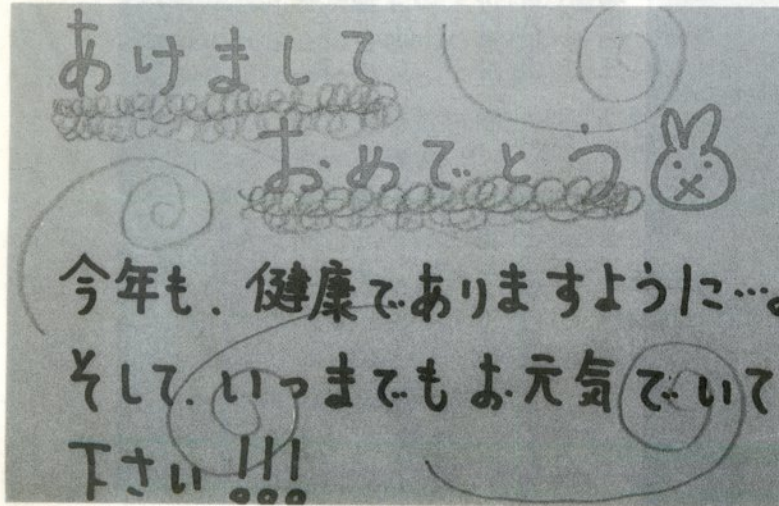 あけまして
おめでとう
今年も、健康でありますように…。
そして、いつまでもお元気でいて
下さい!!!